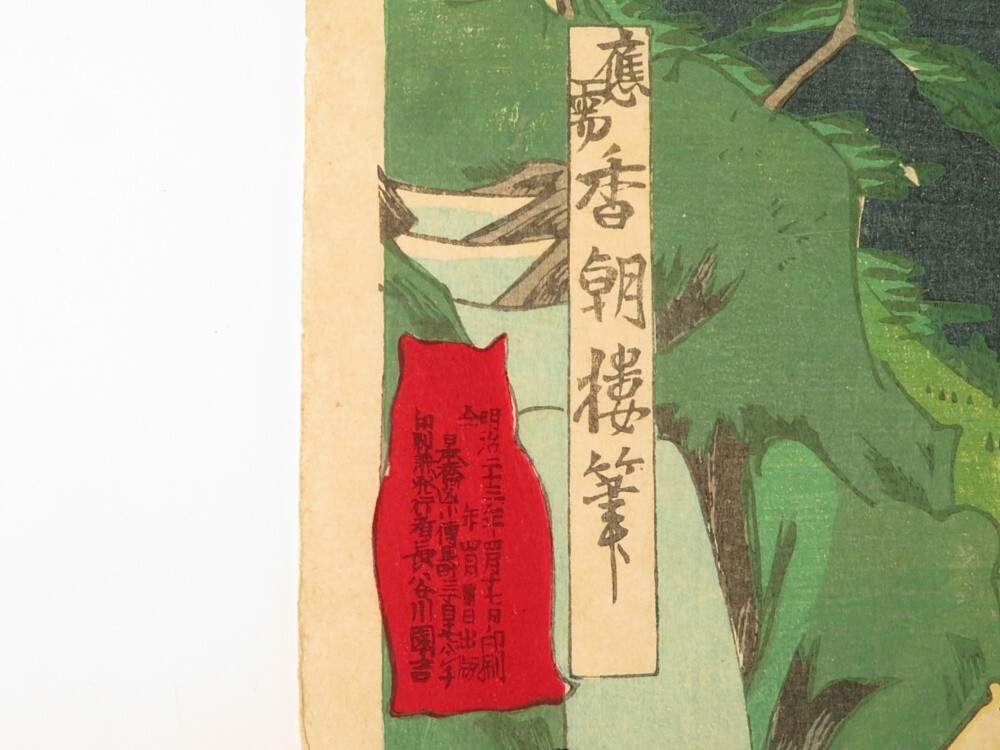 應需
香朝樓筆
明治二十三年四月十七日印刷
仝 年四月 日出版
日本橋區小傳馬町三丁目十七八番
印刷兼発行者長谷川園吉